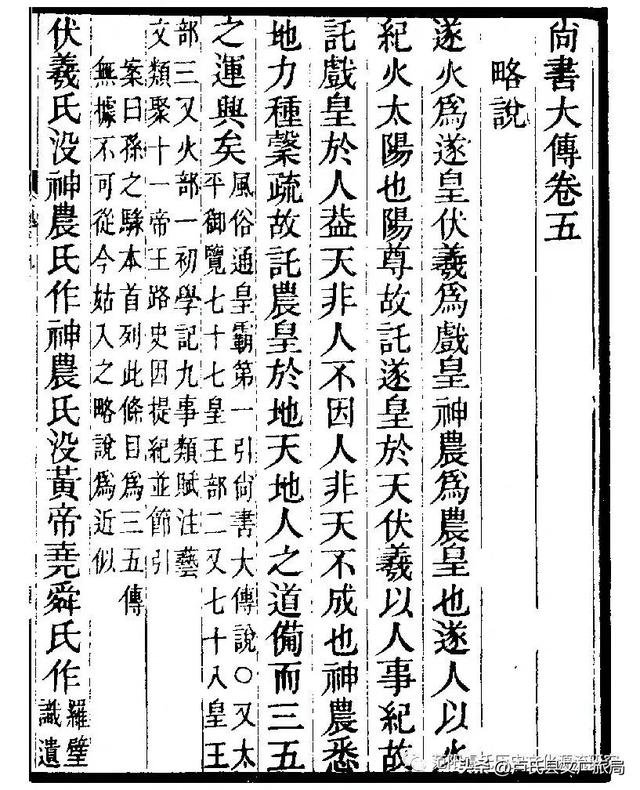 尚書大傳卷五
略說
遂火爲遂皇伏羲爲戲皇神農爲農皇也遂人以火
紀火太陽也陽尊故託遂皇於天伏羲以人事紀故
託戲皇於人葢天非人不因人非天不成也神農悉
地力種槃疏故託農皇於地天地人之道備而三五
之運興矣
風俗通皇霸第一引尚書大傳說○又太
平御覽七十七皇王部二又七十八皇王
部三又火部一初學記九事類賦注藝
文類聚十一帝王路史因提紀並節引
案曰孫之騄本首列此條目爲三五傳
無據不可從今姑入之略說爲近似
伏羲氏没神農氏作神農氏没黃帝堯舜氏作
羅璧
識遺
头条@卢氏县文产张局